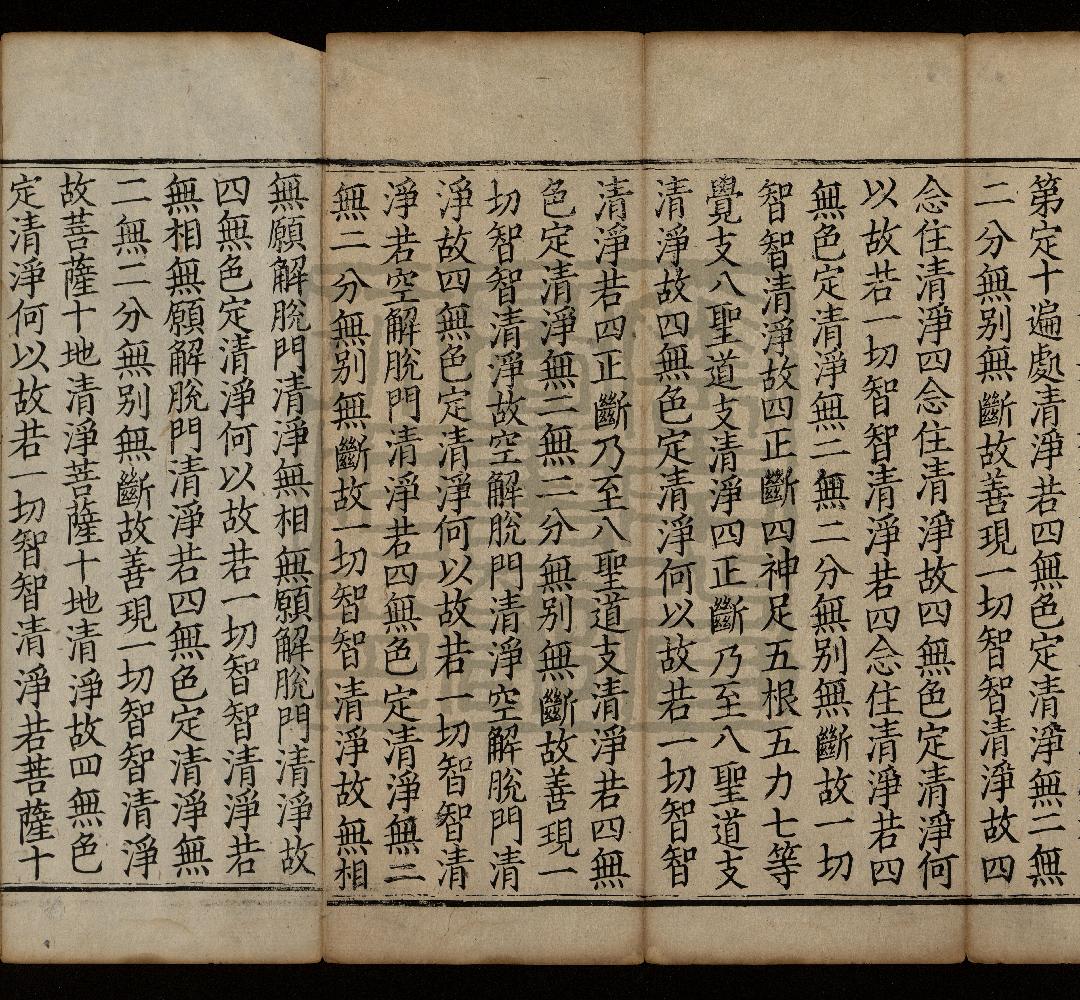 第定十遍處清淨若四無色定清淨無二無
二分無别無斷故善現一切智智清淨故四
念住清淨四念住清淨故四無色定清淨何
以故若一切智智清淨若四念住清淨若四
無色定清淨無二無二分無别無斷故一切
智智清淨故四正斷四神足五根五力七等
覺支八聖道支清淨四正斷乃至八聖道支
清淨故四無色定清淨何以故若一切智智
清淨若四正斷乃至八聖道支清淨若四無
色定清淨無二無二分無别無斷故善現一
切智智清淨故空解脫門清淨空解脫門清
淨故四無色定清淨何以故若一切智智清
淨若空解脫門清淨若四無色定清淨無二
無二分無别無斷故一切智智清淨故無相
無願解脫門清淨無相無願解脫門清淨故
四無色定清淨何以故若一切智智清淨若
無相無願解脫門清淨若四無色定清淨無
二無二分無别無斷故善現一切智智清淨
故菩薩十地清淨菩薩十地清淨故四無色
定清淨何以故若一切智智清淨若菩薩十